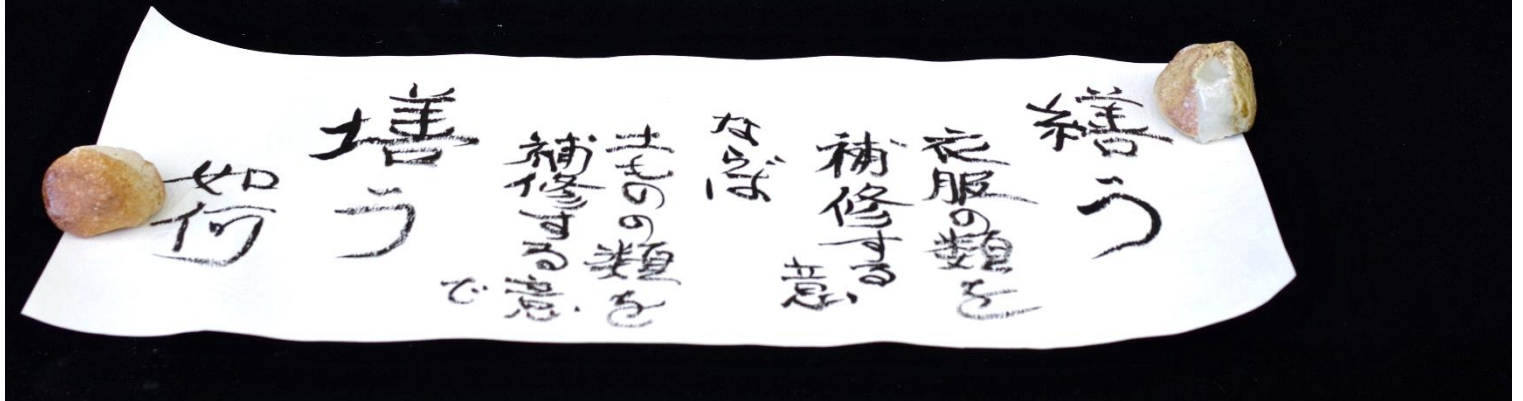 繕う
衣服の類を
補修する
意
ならば
土ものの類を
補修する意
で
墡う
如何